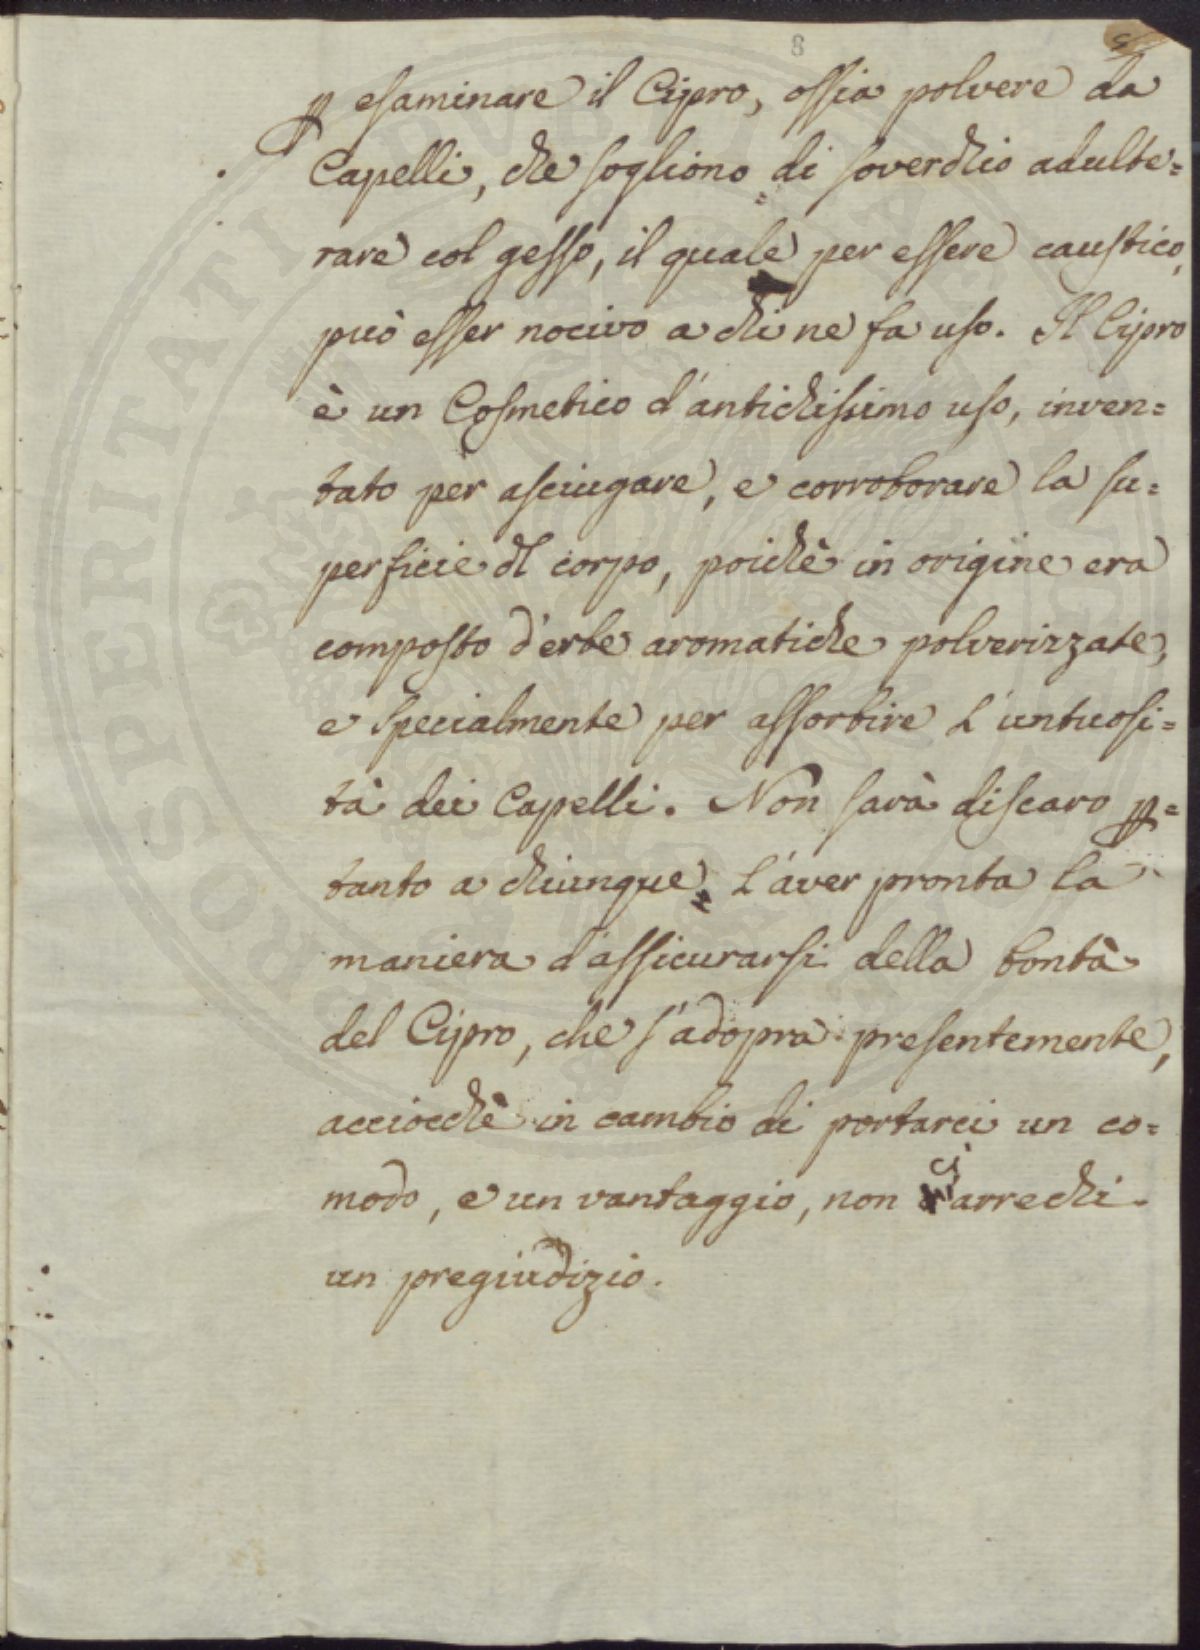 8
ꝑ esaminare il Cipro, ossia polvere da
Capelli, che sogliono di soverchio adulte=
rare col gesso, il quale per essere caustico,
può esser nocivo a chi ne fa uso. Il Cipro
è un Cosmetico d'antichissimo uso, inven=
tato per asciugare, e corroborare la su=
perficie dl corpo, poichè in origine era
composto d'erbe aromatiche polverizzate,
e specialmente per assorbire l'untuosi=
tà dei Capelli. Non sarà discaro ꝑ=
tanto a chiunque l'aver pronta la
maniera d'assicurarsi della bontà
del Cipro, che s'adopra presentemente,
acciocchè in cambio di portarci un co=
modo, e un vantaggio, non ci arrechi
un pregiudizio.
PROSPERITATI PUBLICAE AUGENDAE